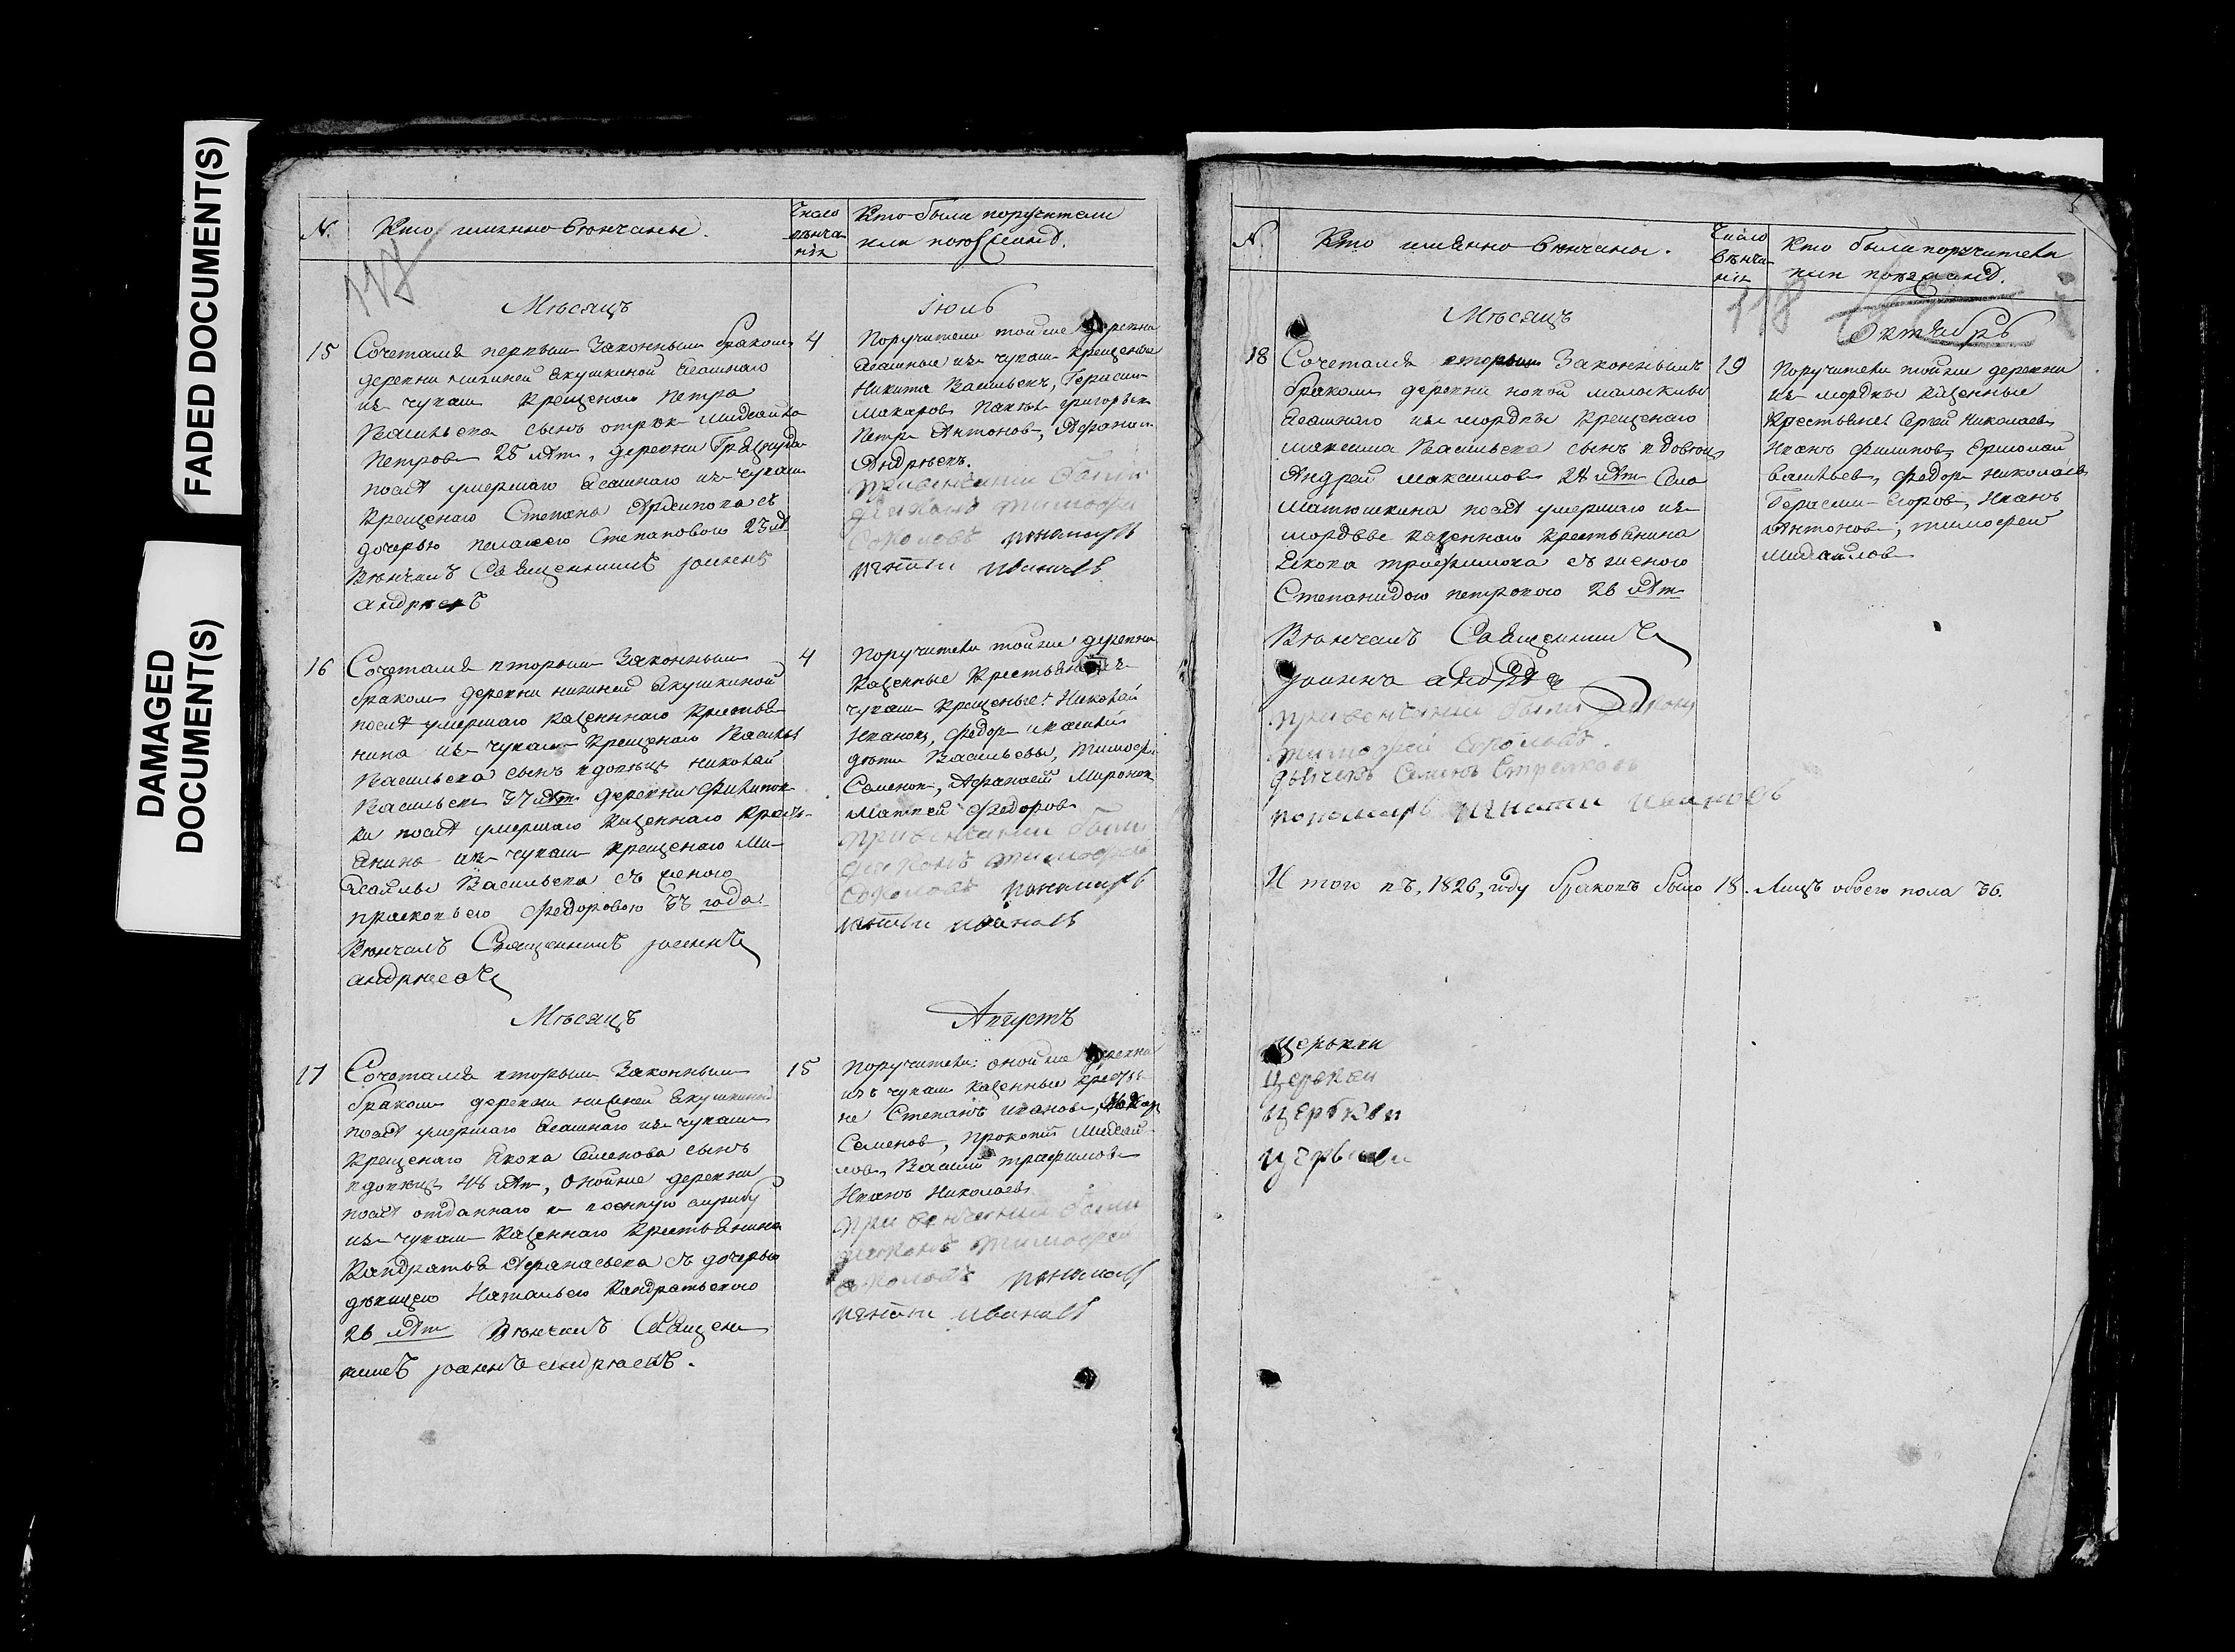 FADED DOCUMENT(S)
DAMAGED
DOCUMENT(S)
№.
Кто именно венчаны.
Число
венча-
нія
Кто были поручители
или поезжаніе.
117
Месяцъ
Іюль
15
Сочетался первымъ законнымъ бракомъ
деревни нижней Якушкиной ясашнаго
изъ чувашъ крещенаго Петра
Васильева сынъ отрокъ Михайла
Петровъ 25 летъ, деревни
после умершаго ясашнаго изъ чувашъ
крещенаго Степана Архипова съ
дочерью Пелагеею Степановою 23 ле
Венчалъ Священникъ Іоаннъ
Андреевъ
4
Поручители тойже деревни
ясашные изъ чувашъ крещеные
Никита Васильевъ, Герасимъ
Макаровъ Павелъ Григорьевъ
Петръ Антоновъ, Афанасей
Андреевъ.
при венчаніи были
діаконъ Тимофей
Соколовъ пономарь
Игнати Ивановъ
16
Сочетался вторымъ законнымъ
бракомъ деревни нижней Якушкиной
после умершаго казеннаго крестья
нина изъ чувашъ крещенаго Василья
Васильева сынъ вдовецъ Николай
Васильевъ 37 летъ деревни Филипов
ки после умершаго казеннаго кресть-
янина изъ чувашъ крещенаго Ми-
хайлы Васильева съ женою
Прасковьею Федоровою 33 года.
Венчалъ Священникъ Іоаннъ
Андреевъ
4
Поручители тойже деревни
казенные крестьяне изъ
чувашъ крещеные: Николай
Ивановъ, Федоръ
дети Васильевы, Тимофей
Семеновъ, Афанасей Мироновъ
Матвей Федоровъ
при венчаніи были
діаконъ Тимофей
Соколовъ пономарь
Игнати Ивановъ
Месяцъ
Августъ
17
Сочетался вторымъ законнымъ
бракомъ деревни нижней Якушкиной
после умершаго ясашнаго изъ чувашъ
крещенаго Якова Семенова сынъ
вдовецъ летъ, онойже деревни
после отданнаго в военную службу
изъ чувашъ казеннаго крестьянина
Кандратья Афанасьева съ дочерью
девицею Натальею Кандратьевою
26 летъ Венчалъ Священ
никъ Іоаннъ Андреевъ.
15
Поручители: онойже деревни
изъ чувашъ казенные крестья
не Степанъ Ивановъ,
Семеновъ, Прокопій Михай
ловъ, Василій Трафимовъ
Иванъ Николаевъ
при венчаніи были
діаконъ Тимофей
Соколовъ пономарь
Игнати Ивановъ
№.
Кто именно венчаны.
Число
венча-
нія
Кто были поручители
или поезжаніе.
118
Месяцъ
Октябрь
18
Сочетался вторымъ законнымъ
бракомъ деревни новой малыклы
ясашнаго изъ мордвы крещенаго
Максима Васильева сынъ вдовецъ
Андрей Максимовъ летъ села
Матюшкина после умершаго изъ
мордвы казеннаго крестьянина
Якова Трафимова съ женою
Степанидою Петровою 26 летъ
Венчалъ Священникъ
Іоаннъ Андреевъ
при венчаніи были діаконъ
Тимофей Соколовъ.
дьячекъ Семенъ Стрелковъ
пономарь Игнати Ивановъ
19
Поручители тойже деревни
изъ мордвы казенные
крестьяне Сергей Николаевъ
Иванъ Филиповъ, Ермолай
Васильевъ, Федоръ Николаевъ
Герасимъ Егоровъ, Иванъ
Антоновъ, Тимофей
Михайловъ
Итого въ, 1826, году браковъ было 18. Лицъ обоего пола 36.
Церькви
Церькви
Церькви
Церькви